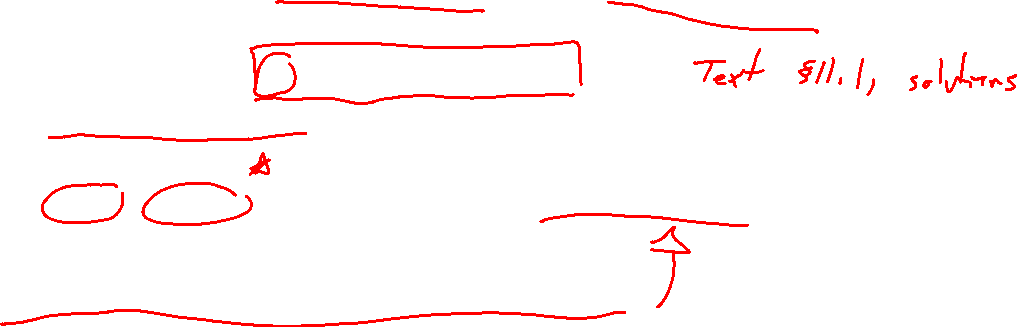 Text §11.1, solutions